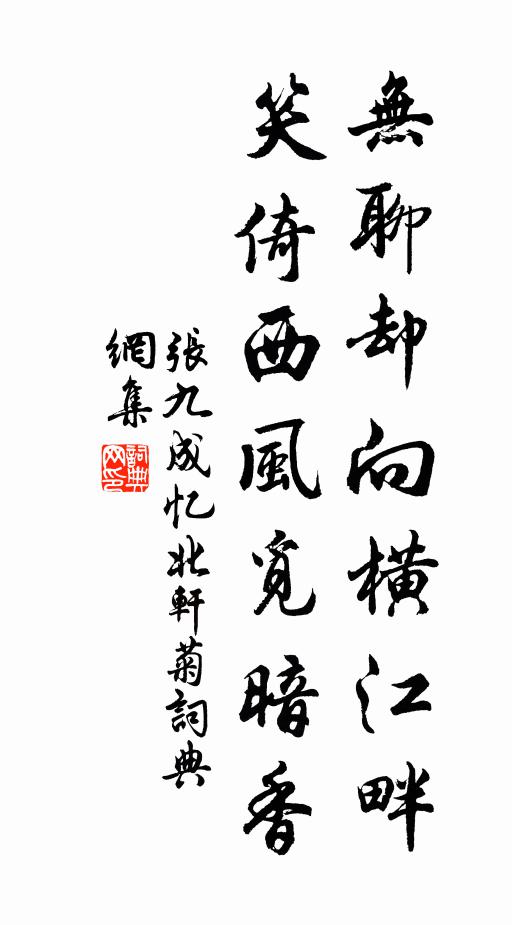 無聊却向橫江畔
笑倚西風覓暗香
張九成忆北軒菊詞典
網集
詞典網印